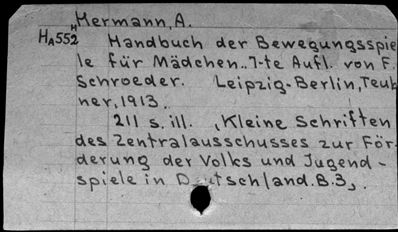 Hermann, A.
HA552H Handbuch der Bewegungsspie
le für Mädchen. 7-te Aufl. von F.
Schroeder. Leipzig-Berlin, Teub
ner, 1913.
211 s. ill. „Kleine Schriften
des Zentralausschusses zur För-
derung der Volks und Jugend-
spiele in Deutschland. B. 3„.